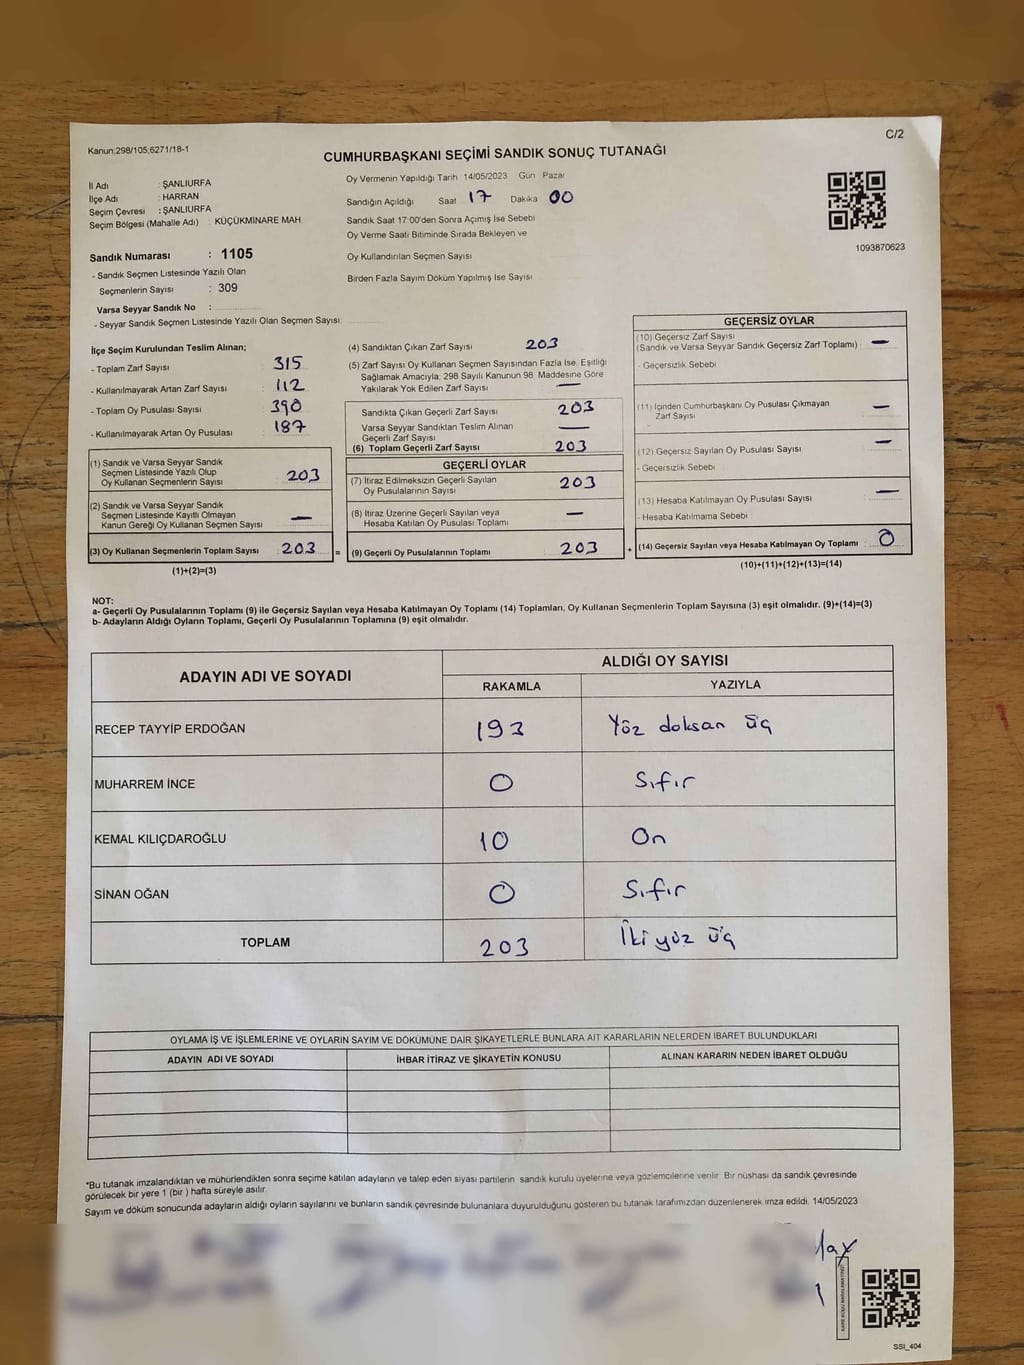 C/2
Kanun;298/105;6271/18-1
CUMHURBAŞKANI SEÇİMİ SANDIK SONUÇ TUTANAĞI
İl Adı : ŞANLIURFA
İlçe Adı : HARRAN
Seçim Çevresi : ŞANLIURFA
Seçim Bölgesi (Mahalle Adı) : KÜÇÜKMİNARE MAH.
Sandık Numarası : 1105
- Sandık Seçmen Listesinde Yazılı Olan
Seçmenlerin Sayısı : 309
Varsa Seyyar Sandık No :
- Seyyar Sandık Seçmen Listesinde Yazılı Olan Seçmen Sayısı:
Oy Vermenin Yapıldığı Tarih 14/05/2023 Gün Pazar
Sandığın Açıldığı Saat 17 Dakika 00
Sandık Saat 17:00'den Sonra Açımış İse Sebebi
Oy Verme Saati Bitiminde Sırada Bekleyen ve
Oy Kullandırılan Seçmen Sayısı
Birden Fazla Sayım Döküm Yapılmış İse Sayısı
1093870623
İlçe Seçim Kurulundan Teslim Alınan;
- Toplam Zarf Sayısı : 315
- Kullanılmayarak Artan Zarf Sayısı : 112
- Toplam Oy Pusulası Sayısı : 390
- Kullanılmayarak Artan Oy Pusulası : 187
(1) Sandık ve Varsa Seyyar Sandık
Seçmen Listesinde Yazılı Olup
Oy Kullanan Seçmenlerin Sayısı : 203
(2) Sandık ve Varsa Seyyar Sandık
Seçmen Listesinde Kayıtlı Olmayan
Kanun Gereği Oy Kullanan Seçmen Sayısı : —
(3) Oy Kullanan Seçmenlerin Toplam Sayısı : 203 =
(1)+(2)=(3)
(4) Sandıktan Çıkan Zarf Sayısı 203
(5) Zarf Sayısı Oy Kullanan Seçmen Sayısından Fazla İse, Eşitliği
Sağlamak Amacıyla, 298 Sayılı Kanunun 98. Maddesine Göre
Yakılarak Yok Edilen Zarf Sayısı —
Sandıkta Çıkan Geçerli Zarf Sayısı 203
Varsa Seyyar Sandıktan Teslim Alınan
Geçerli Zarf Sayısı —
(6) Toplam Geçerli Zarf Sayısı 203
GEÇERLİ OYLAR
(7) İtiraz Edilmeksizin Geçerli Sayılan
Oy Pusulalarının Sayısı 203
(8) İtiraz Üzerine Geçerli Sayılan veya
Hesaba Katılan Oy Pusulası Toplamı —
(9) Geçerli Oy Pusulalarının Toplamı 203 +
GEÇERSİZ OYLAR
(10) Geçersiz Zarf Sayısı
(Sandık ve Varsa Seyyar Sandık Geçersiz Zarf Toplamı) : —
- Geçersizlik Sebebi
(11) İçinden Cumhurbaşkanı Oy Pusulası Çıkmayan
Zarf Sayısı —
(12) Geçersiz Sayılan Oy Pusulası Sayısı —
- Geçersizlik Sebebi
(13) Hesaba Katılmayan Oy Pusulası Sayısı —
- Hesaba Katılmama Sebebi
(14) Geçersiz Sayılan veya Hesaba Katılmayan Oy Toplamı : 0
(10)+(11)+(12)+(13)=(14)
NOT:
a- Geçerli Oy Pusulalarının Toplamı (9) ile Geçersiz Sayılan veya Hesaba Katılmayan Oy Toplamı (14) Toplamları, Oy Kullanan Seçmenlerin Toplam Sayısına (3) eşit olmalıdır. (9)+(14)=(3)
b- Adayların Aldığı Oyların Toplamı, Geçerli Oy Pusulalarının Toplamına (9) eşit olmalıdır.
ADAYIN ADI VE SOYADI ALDIĞI OY SAYISI
RAKAMLA YAZIYLA
RECEP TAYYİP ERDOĞAN 193 Yöz doksan üç
MUHARREM İNCE 0 Sıfır
KEMAL KILIÇDAROĞLU 10 On
SİNAN OĞAN 0 Sıfır
TOPLAM 203 İki yüz üç
OYLAMA İŞ VE İŞLEMLERİNE VE OYLARIN SAYIM VE DÖKÜMÜNE DAİR ŞİKAYETLERLE BUNLARA AİT KARARLARIN NELERDEN İBARET BULUNDUKLARI
ADAYIN ADI VE SOYADI İHBAR İTİRAZ VE ŞİKAYETİN KONUSU ALINAN KARARIN NEDEN İBARET OLDUĞU
*Bu tutanak imzalandıktan ve mühürlendikten sonra seçime katılan adayların ve talep eden siyasi partilerin sandık kurulu üyelerine veya gözlemcilerine verilir. Bir nüshası da sandık çevresinde
görülecek bir yere 1 (bir ) hafta süreyle asılır.
Sayım ve döküm sonucunda adayların aldığı oyların sayılarını ve bunların sandık çevresinde bulunanlara duyurulduğunu gösteren bu tutanak tarafımızdan düzenlenerek imza edildi. 14/05/2023
SSI_404